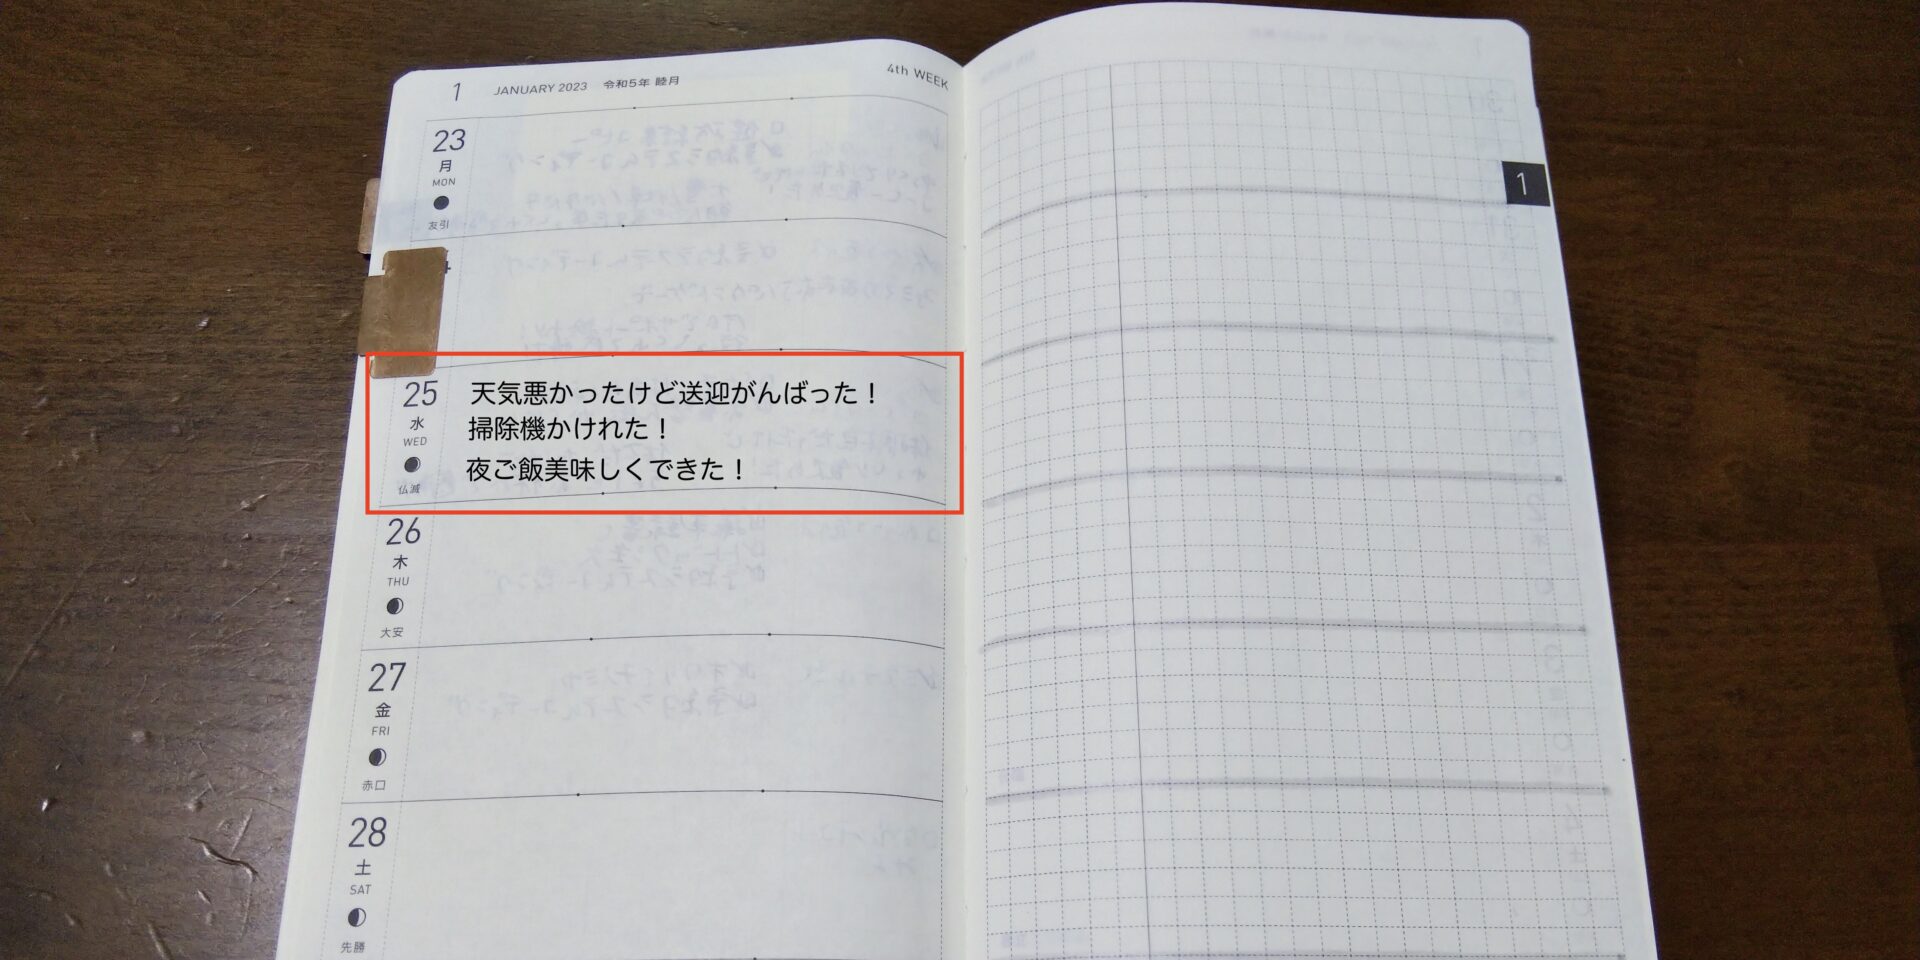 1 JANUARY 2023 令和5年 睦月 4th WEEK
23
月
MON
友引
25
水
WED
仏滅
天気悪かったけど送迎がんばった！
掃除機かけれた！
夜ご飯美味しくできた！
26
木
THU
大安
27
金
FRI
赤口
28
土
SAT
先勝
1